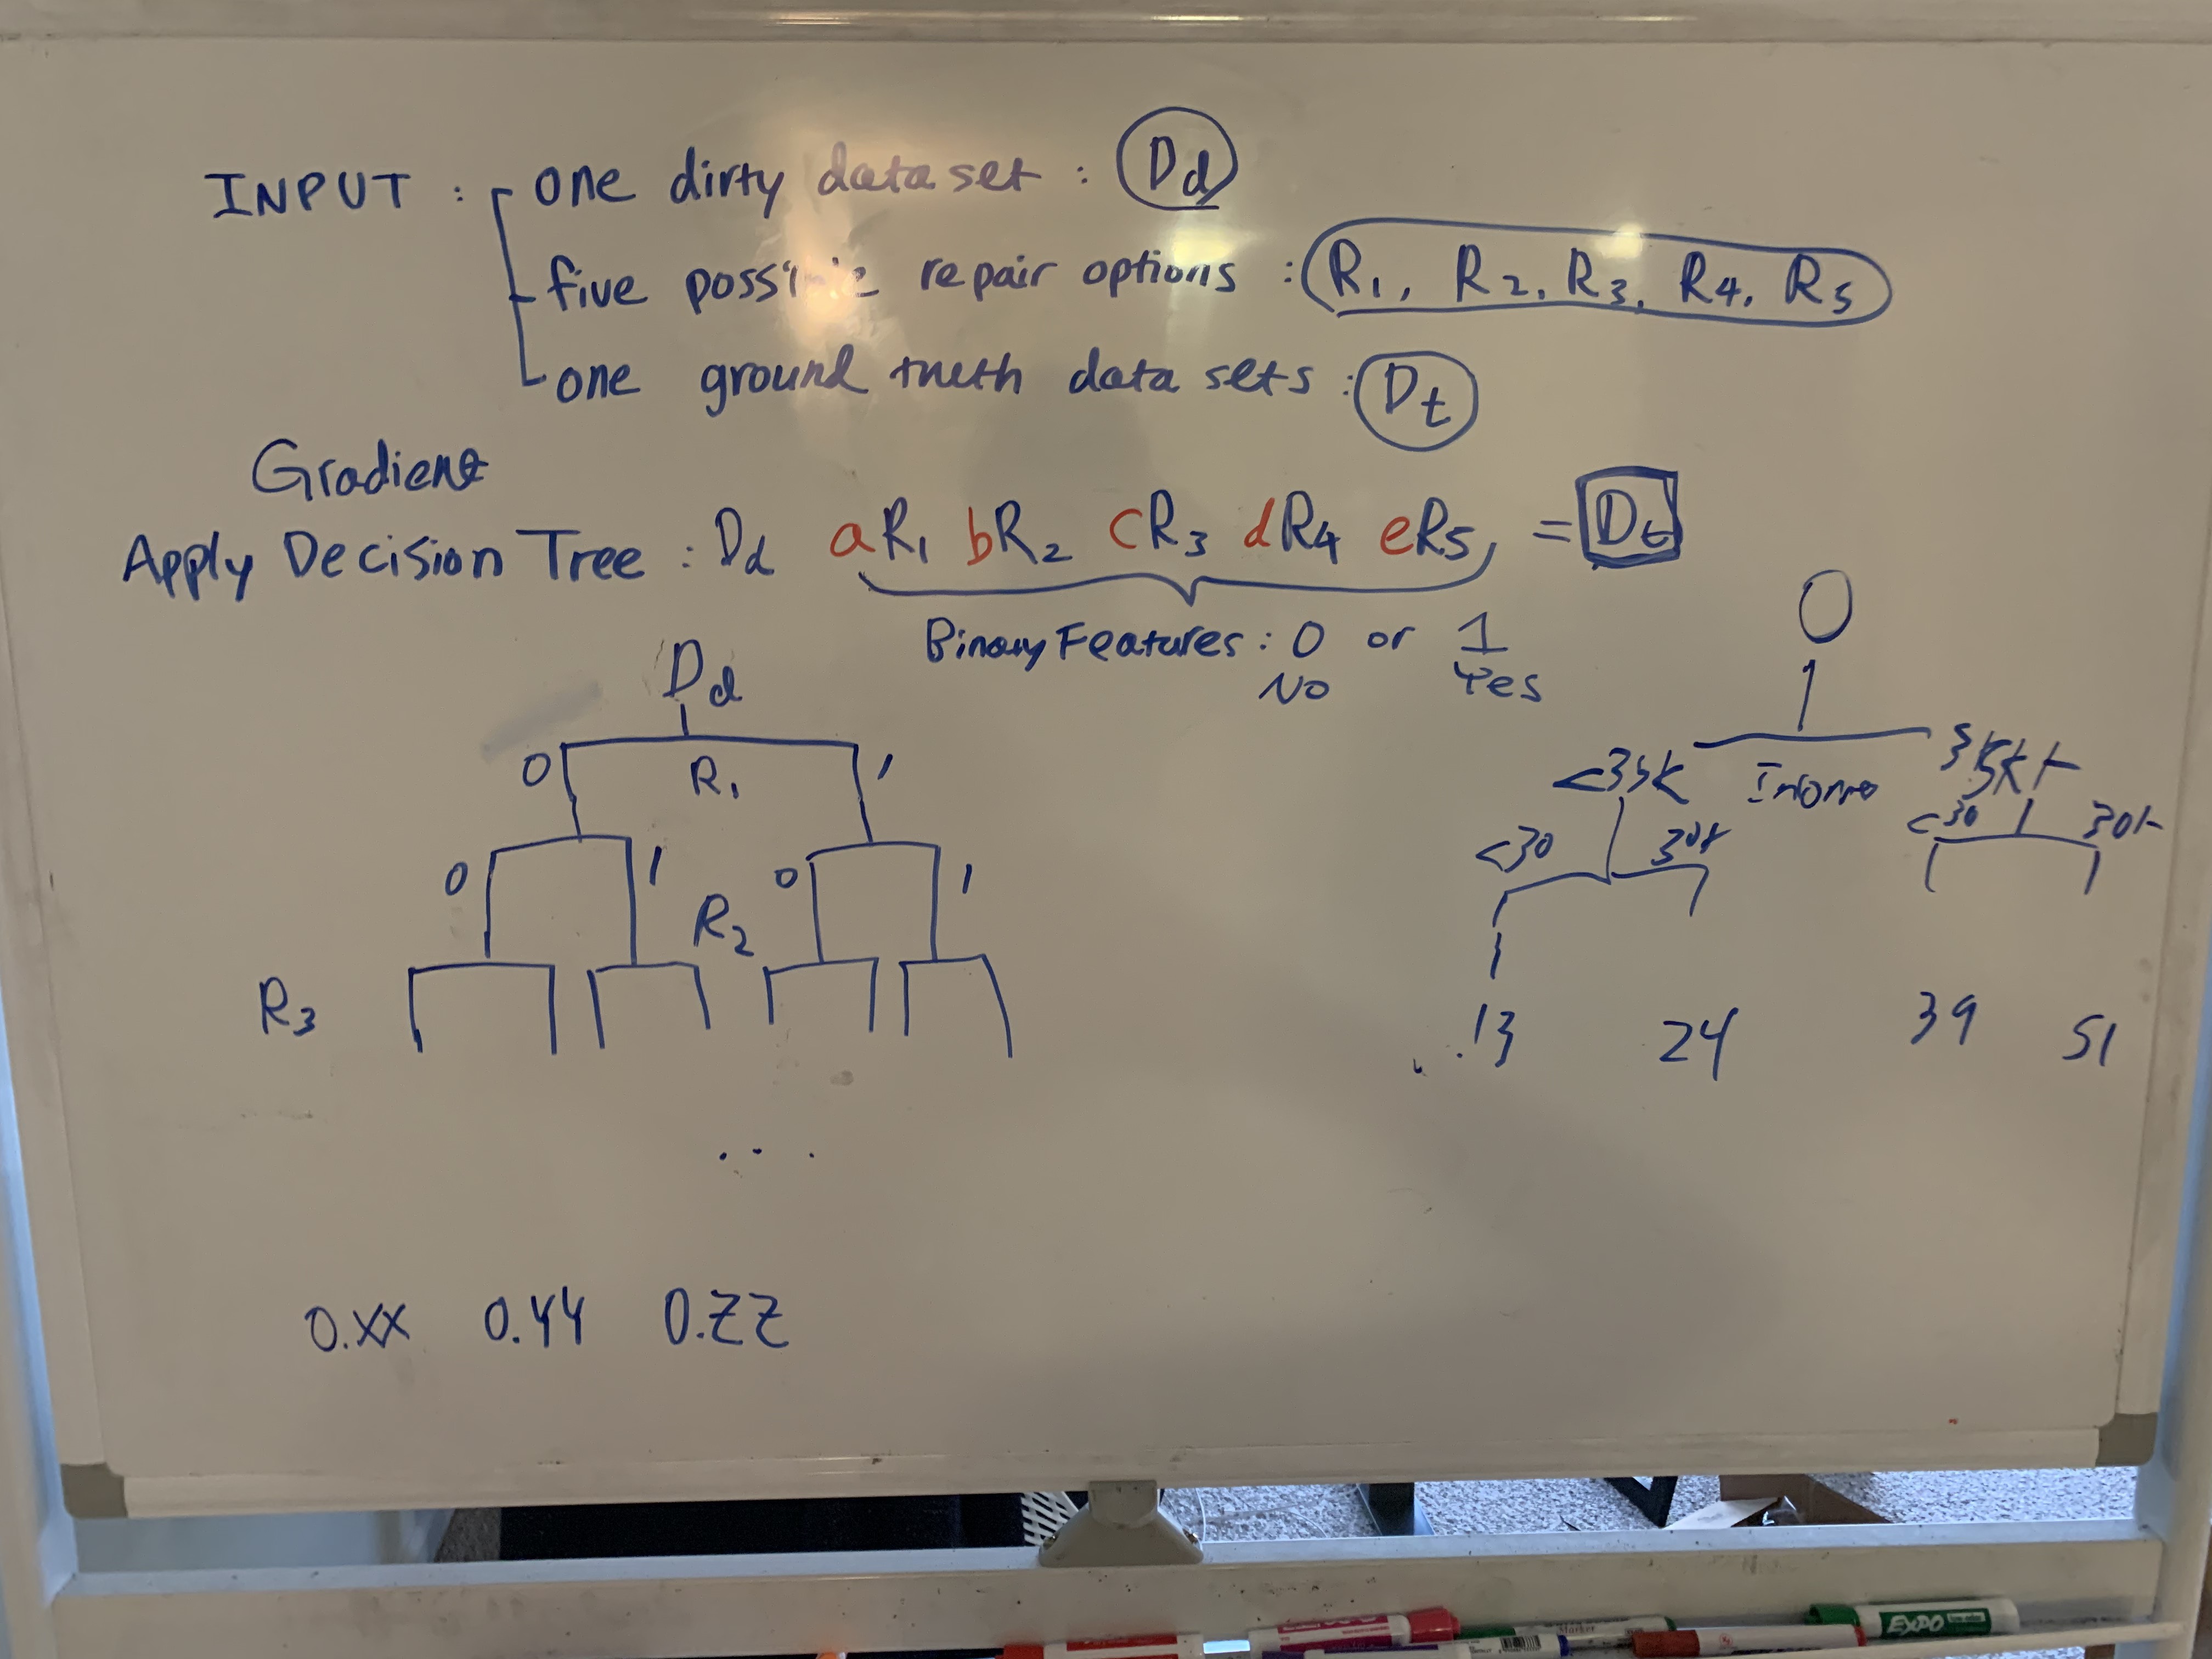 INPUT : one dirty data set : Dd
five possible repair options : R1, R2, R3, R4, R5
one ground truth data sets : Dt
Gradient
Apply Decision Tree : Dd aR1 bR2 cR3 dR4 eR5, = Dt
Binary Features : 0 or 1
No Yes
Dd
0 R1 1
0 1 R2 0 1
R3
...
0.XX 0.YY 0.ZZ
0
<35k Income 35k+
<30 30+ <30 30+
.13 24 39 51
EXPO